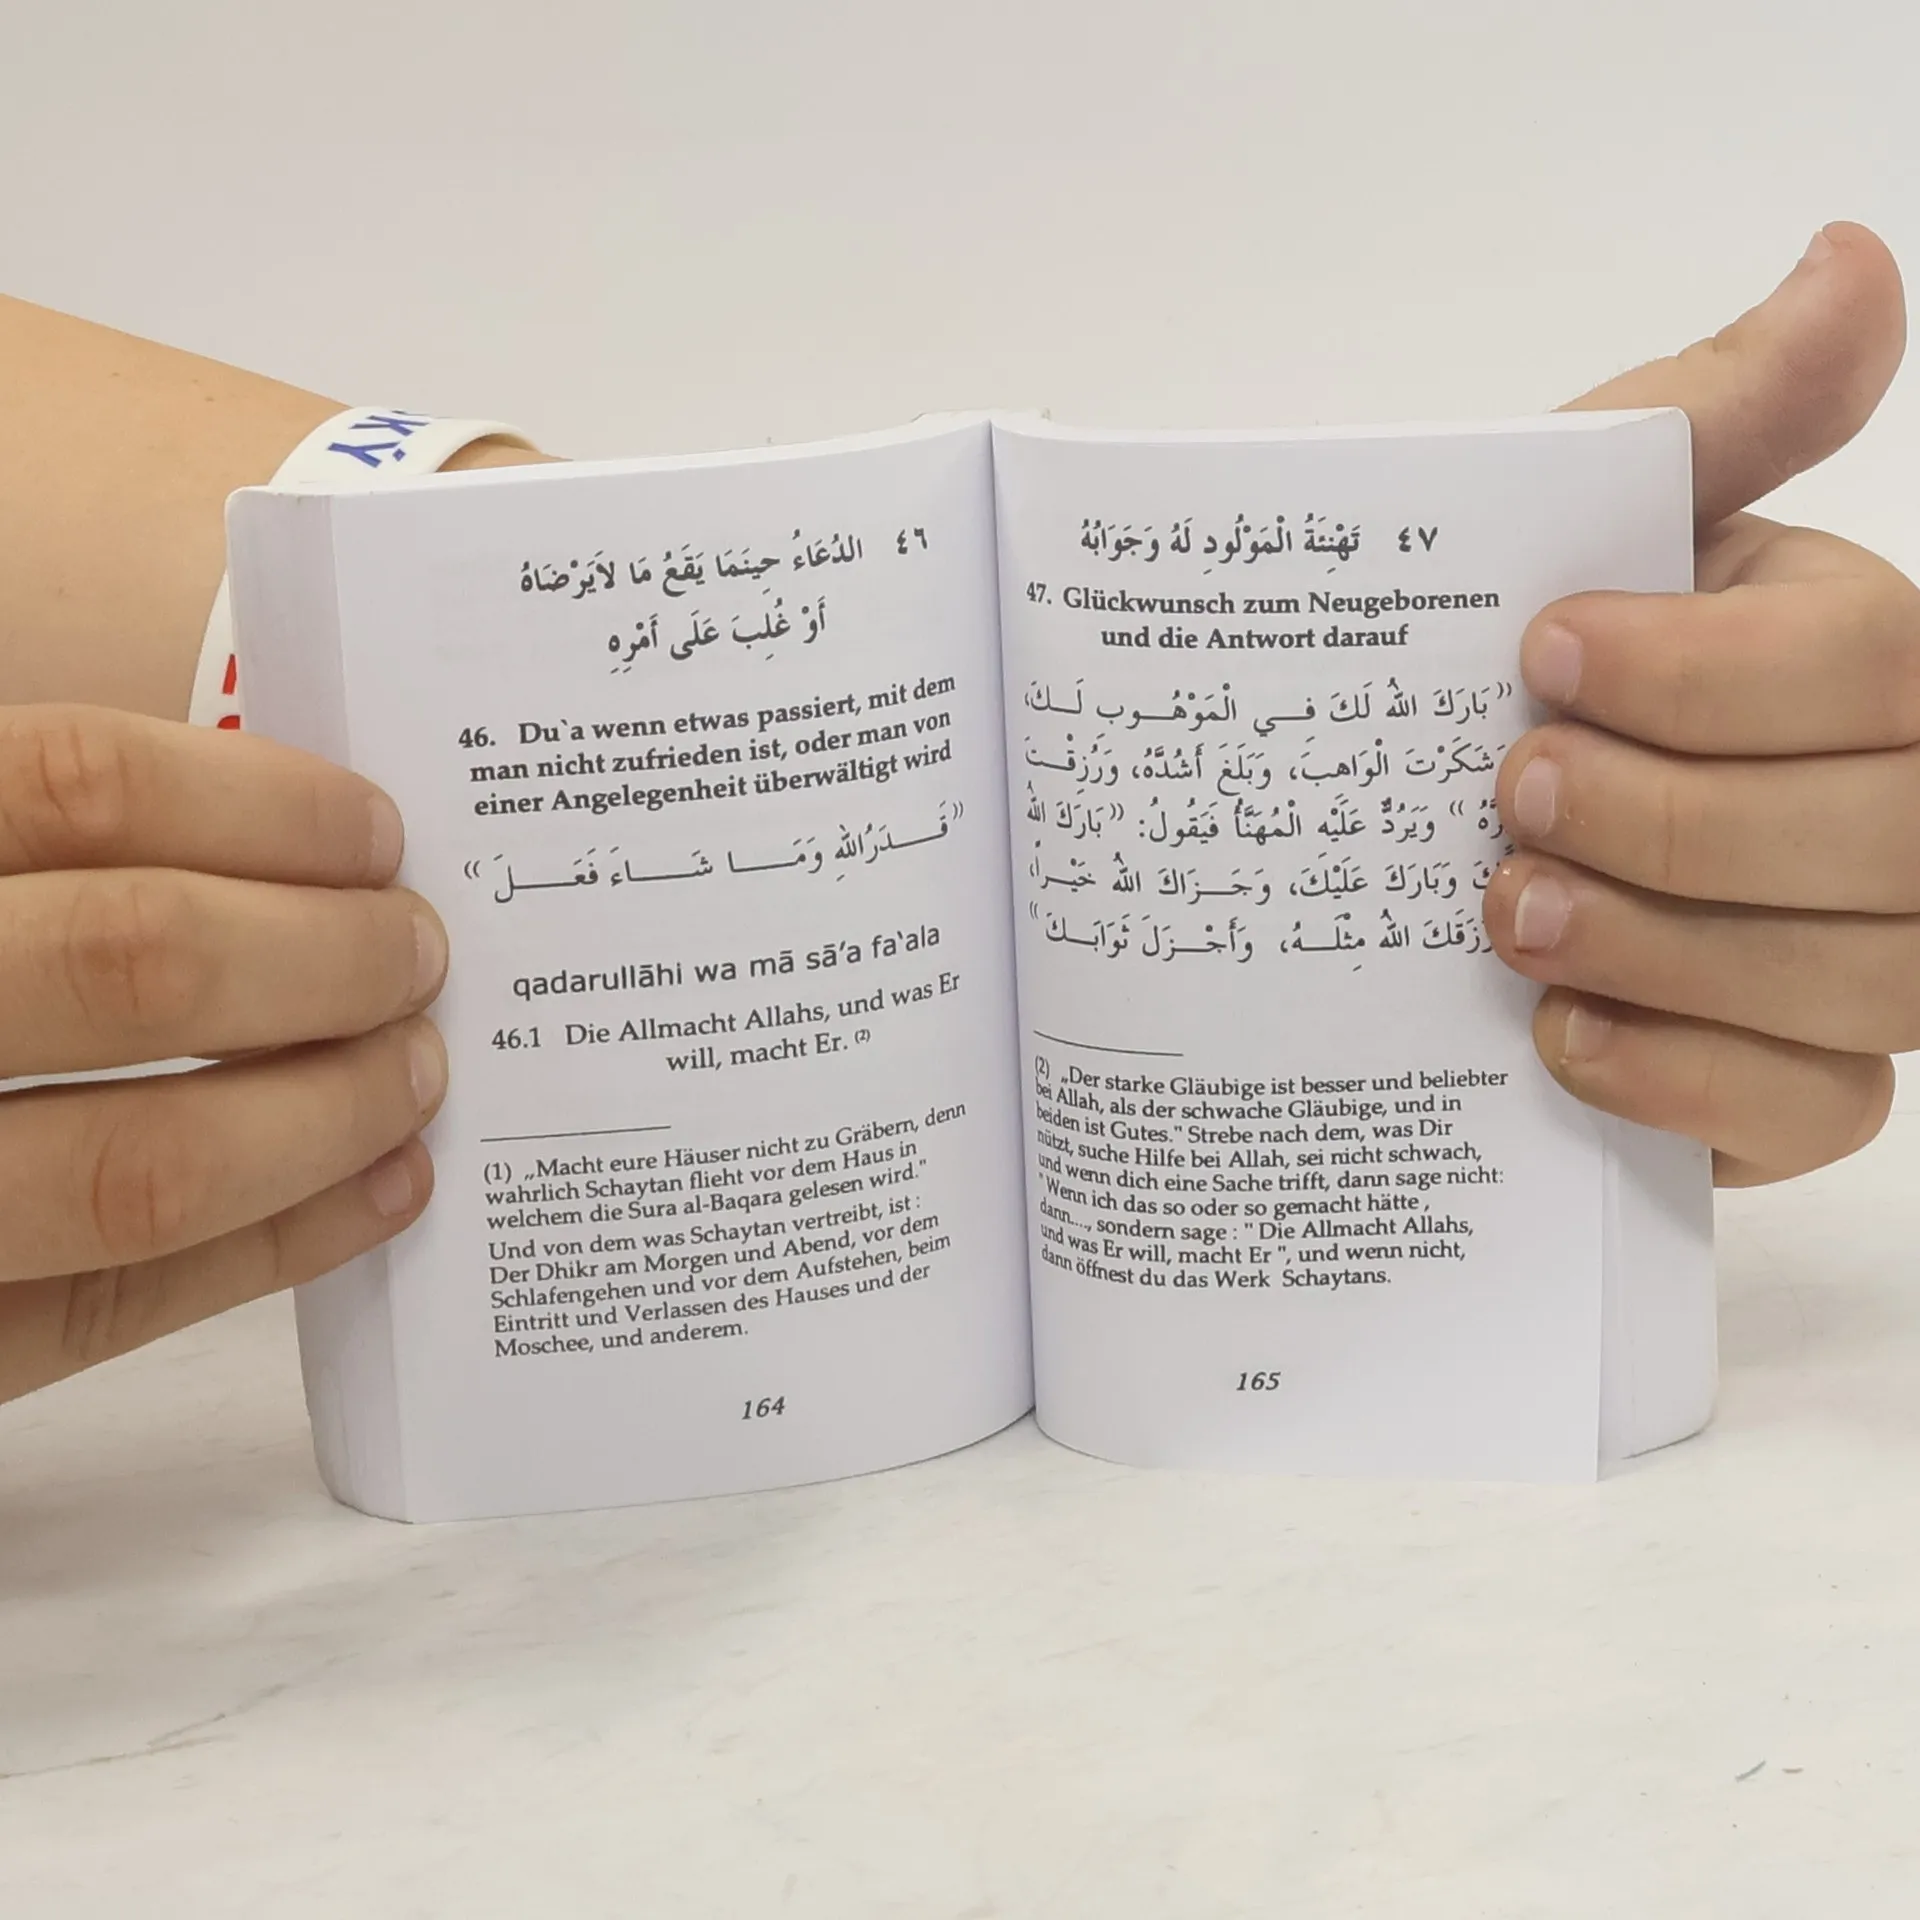 ٤٦ الدُعَاءُ حِينَمَا يَقَعُ مَا لاَيَرْضَاهُ
أَوْ غُلِبَ عَلَى أَمْرِهِ
46. Du`a wenn etwas passiert, mit dem
man nicht zufrieden ist, oder man von
einer Angelegenheit überwältigt wird
«قَـــدَرُاللهِ وَمَـــا شَـــاءَ فَعَـــلَ»
qadarullāhi wa mā sā’a fa‘ala
46.1 Die Allmacht Allahs, und was Er
will, macht Er. (2)
(1) „Macht eure Häuser nicht zu Gräbern, denn
wahrlich Schaytan flieht vor dem Haus in
welchem die Sura al-Baqara gelesen wird."
Und von dem was Schaytan vertreibt, ist :
Der Dhikr am Morgen und Abend, vor dem
Schlafengehen und vor dem Aufstehen, beim
Eintritt und Verlassen des Hauses und der
Moschee, und anderem.
164
٤٧ تَهْنِئَةُ الْمَوْلُودِ لَهُ وَجَوَابُهُ
47. Glückwunsch zum Neugeborenen
und die Antwort darauf
«بَارَكَ اللهُ لَكَ فِـــي الْمَوْهُـــوبِ لَـــكَ،
شَكَرْتَ الْوَاهِبَ، وَبَلَغَ أَشُدَّهُ، وَرُزِقْـــتَ
» وَيَرُدُّ عَلَيْهِ الْمُهَنَّأُ فَيَقُولُ: «بَارَكَ اللهُ
وَبَارَكَ عَلَيْكَ، وَجَـــزَاكَ اللهُ خَيْـــراً،
اللهُ مِثْلَـــهُ، وَأَجْـــزَلَ ثَوَابَـــكَ»
(2) „Der starke Gläubige ist besser und beliebter
bei Allah, als der schwache Gläubige, und in
beiden ist Gutes." Strebe nach dem, was Dir
nützt, suche Hilfe bei Allah, sei nicht schwach,
und wenn dich eine Sache trifft, dann sage nicht:
"Wenn ich das so oder so gemacht hätte ,
dann...., sondern sage : " Die Allmacht Allahs,
und was Er will, macht Er ", und wenn nicht,
dann öffnest du das Werk Schaytans.
165